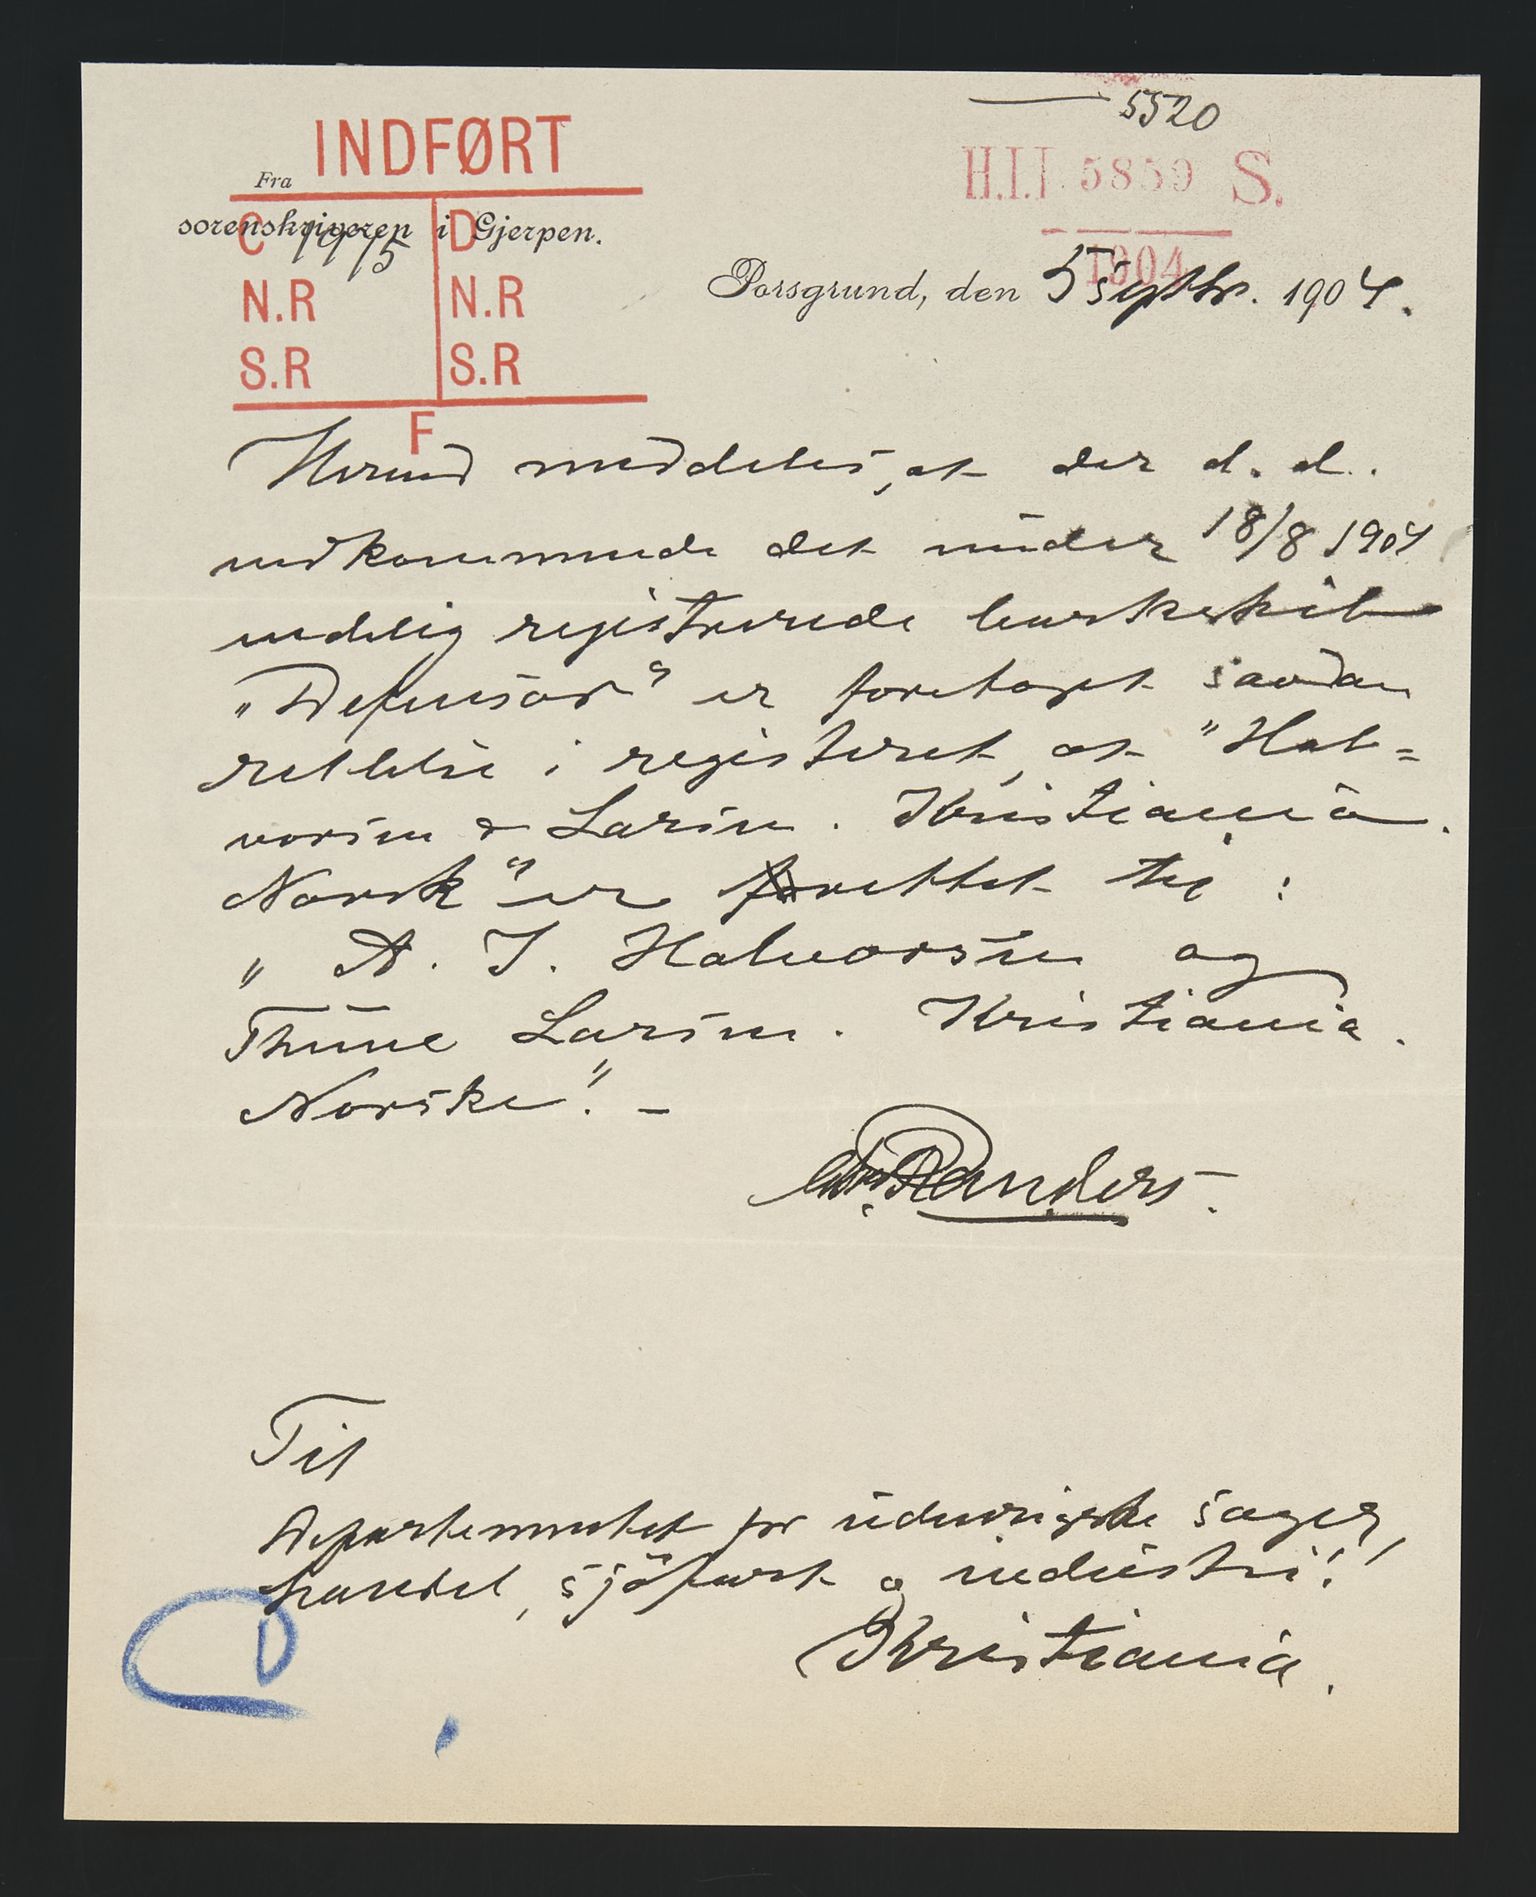 5520
INDFØRT
H.I.I 5859 S.
1904
Fra
sorenskriveren i Gjerpen.
C 19/5 D
N.R N.R
S.R S.R
F
Porsgrund, den 5 septbr. 1904.
Herved meddeles, at der d. d.
vedkommende det under 18/8 1904
endelig registrerede barkskib
"Defensor" er foretaget saadan
rettelse i registeret, at "Hal=
vorsen & Larsen. Kristiania.
Norsk" er rettet til:
"A. J. Halvorsen og
Thune Larsen. Kristiania.
Norske". -
Randers.
Til
Departementet for udenrigske sager,
handel, sjöfart og industri!!
Kristiania.